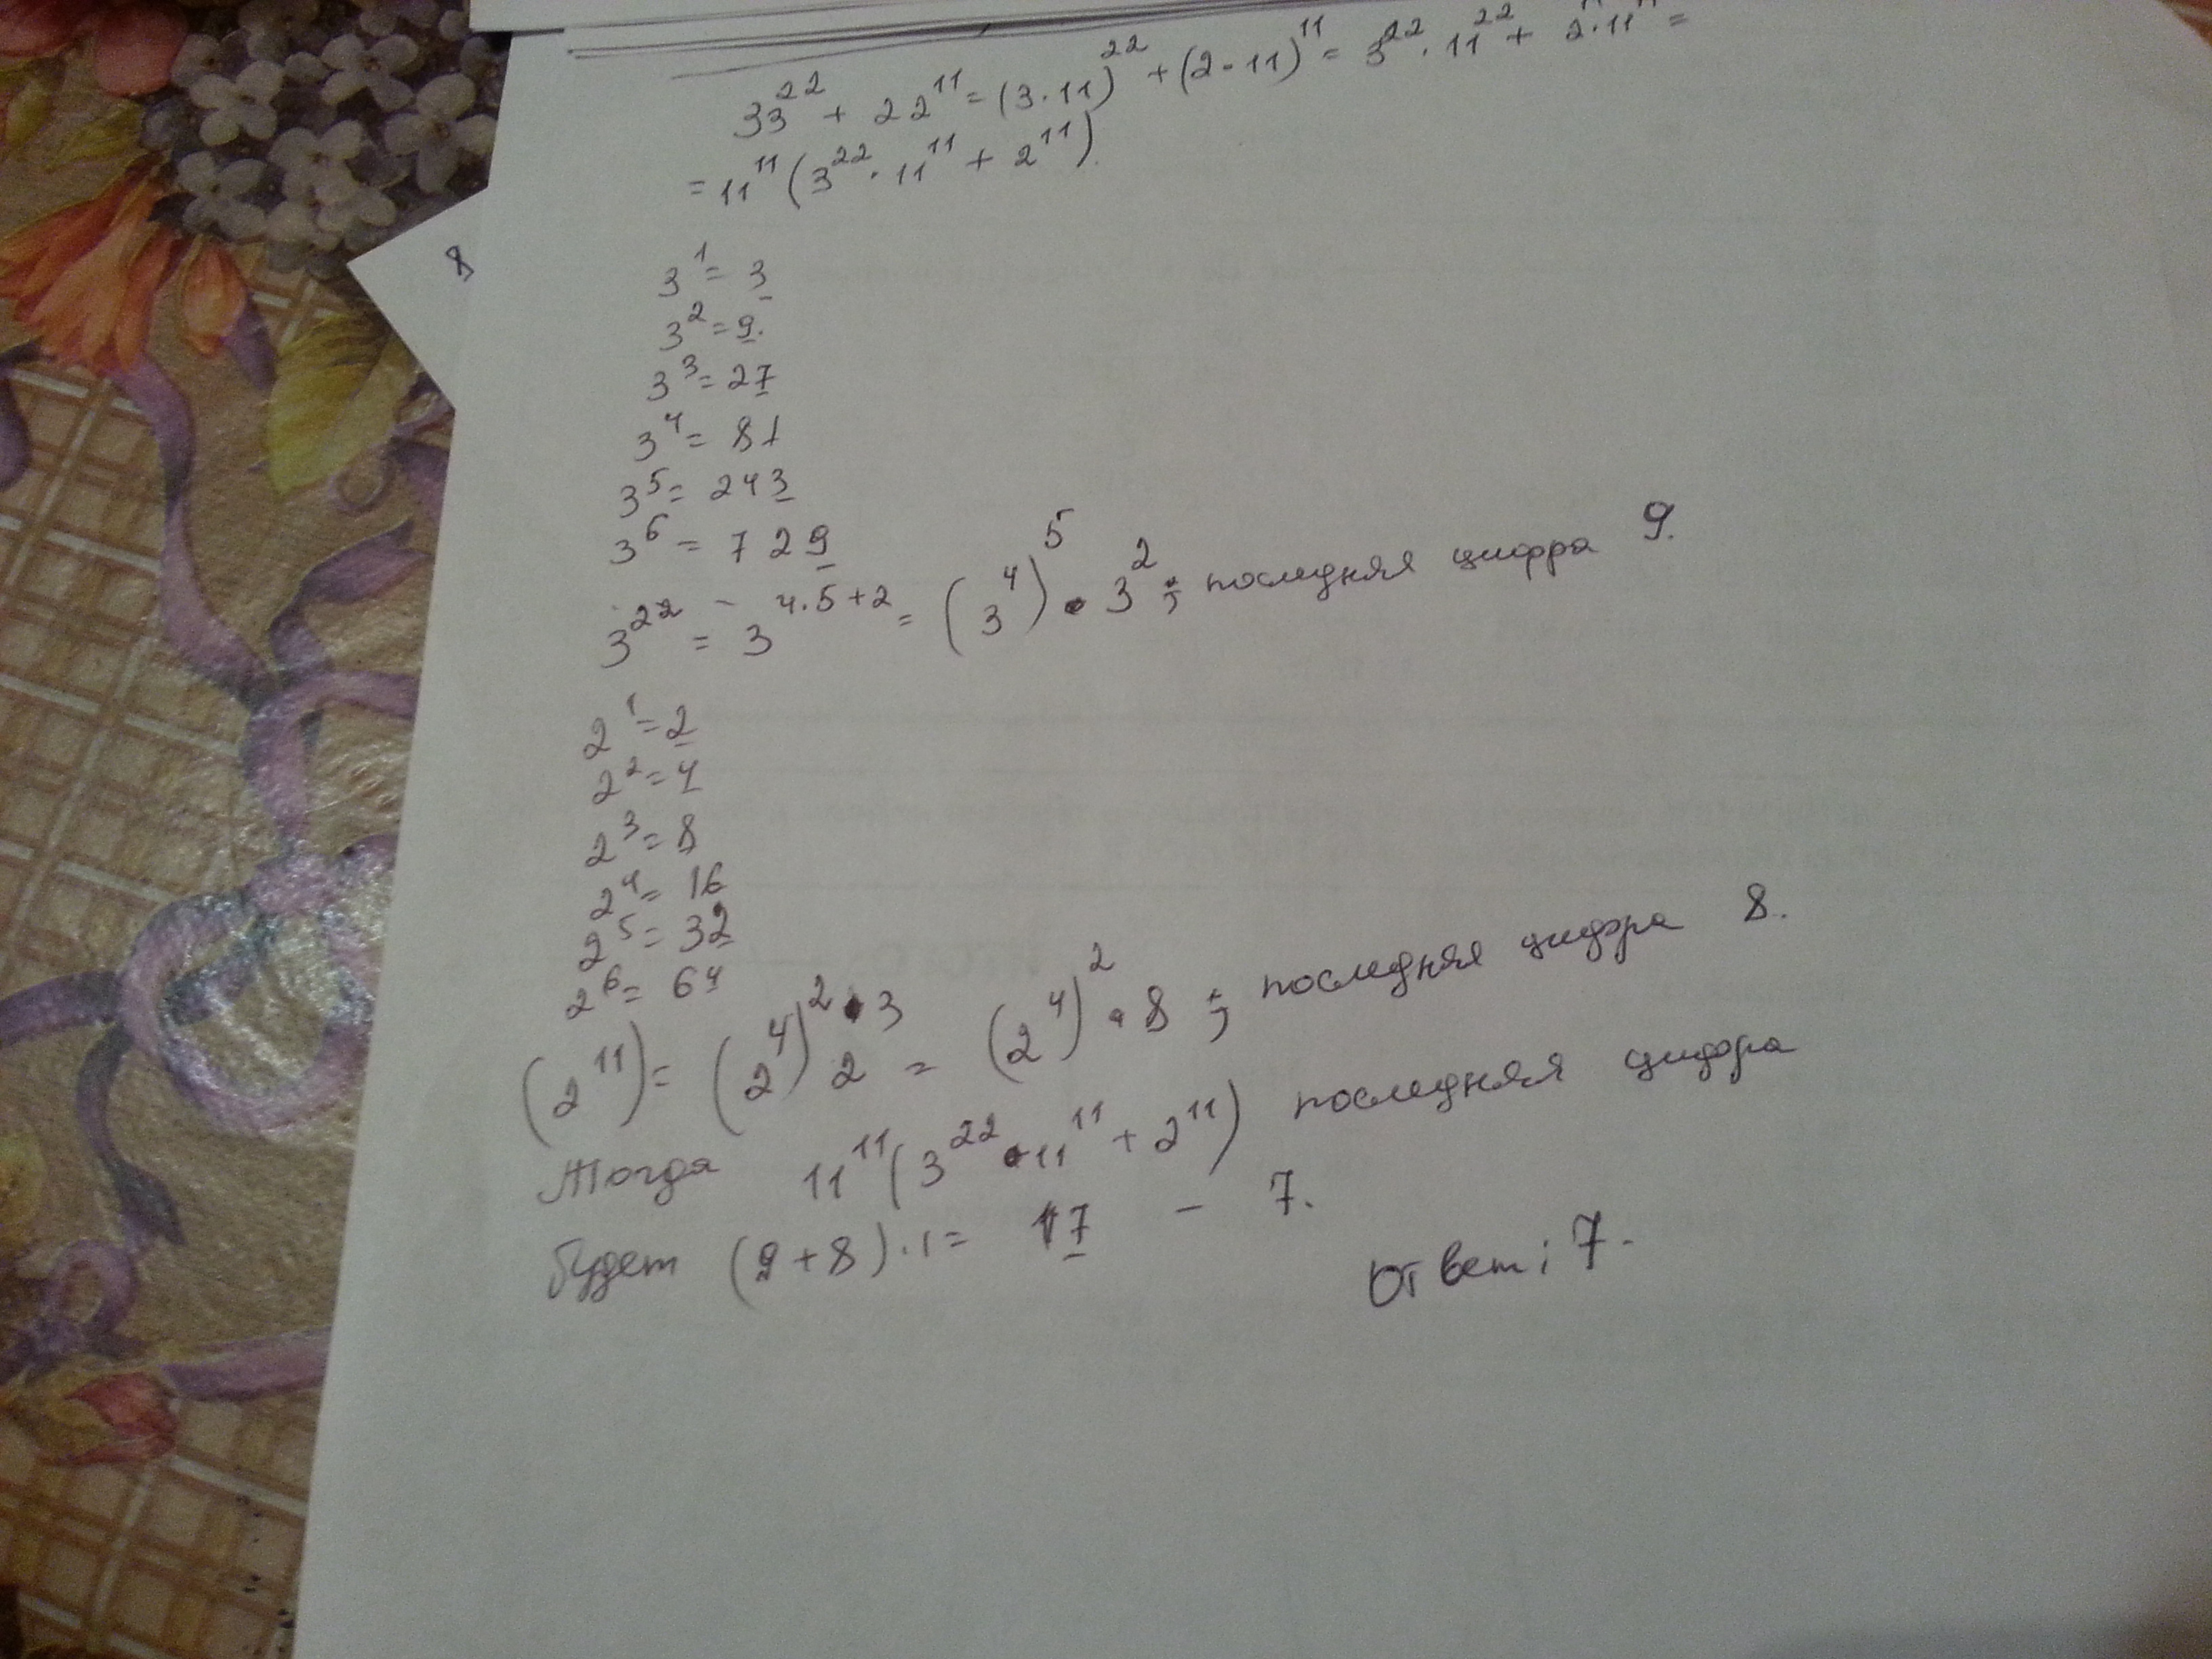 33^22 + 22^11 = (3·11)^22 + (2·11)^11 = 3^22 · 11^22 + 2^11 · 11^11 =
= 11^11 (3^22 · 11^11 + 2^11).
8
3^1 = 3
3^2 = 9.
3^3 = 27
3^4 = 81
3^5 = 243
3^6 = 729
3^22 = 3^(4·5+2) = (3^4)^5 · 3^2; последняя цифра 9.
2^1 = 2
2^2 = 4
2^3 = 8
2^4 = 16
2^5 = 32
2^6 = 64
(2^11) = (2^4)^2 · 2^3 = (2^4)^2 · 8; последняя цифра 8.
Тогда 11^11 (3^22 · 11^11 + 2^11) последняя цифра
будет (9 + 8) · 1 = 17 – 7.
Ответ: 7.